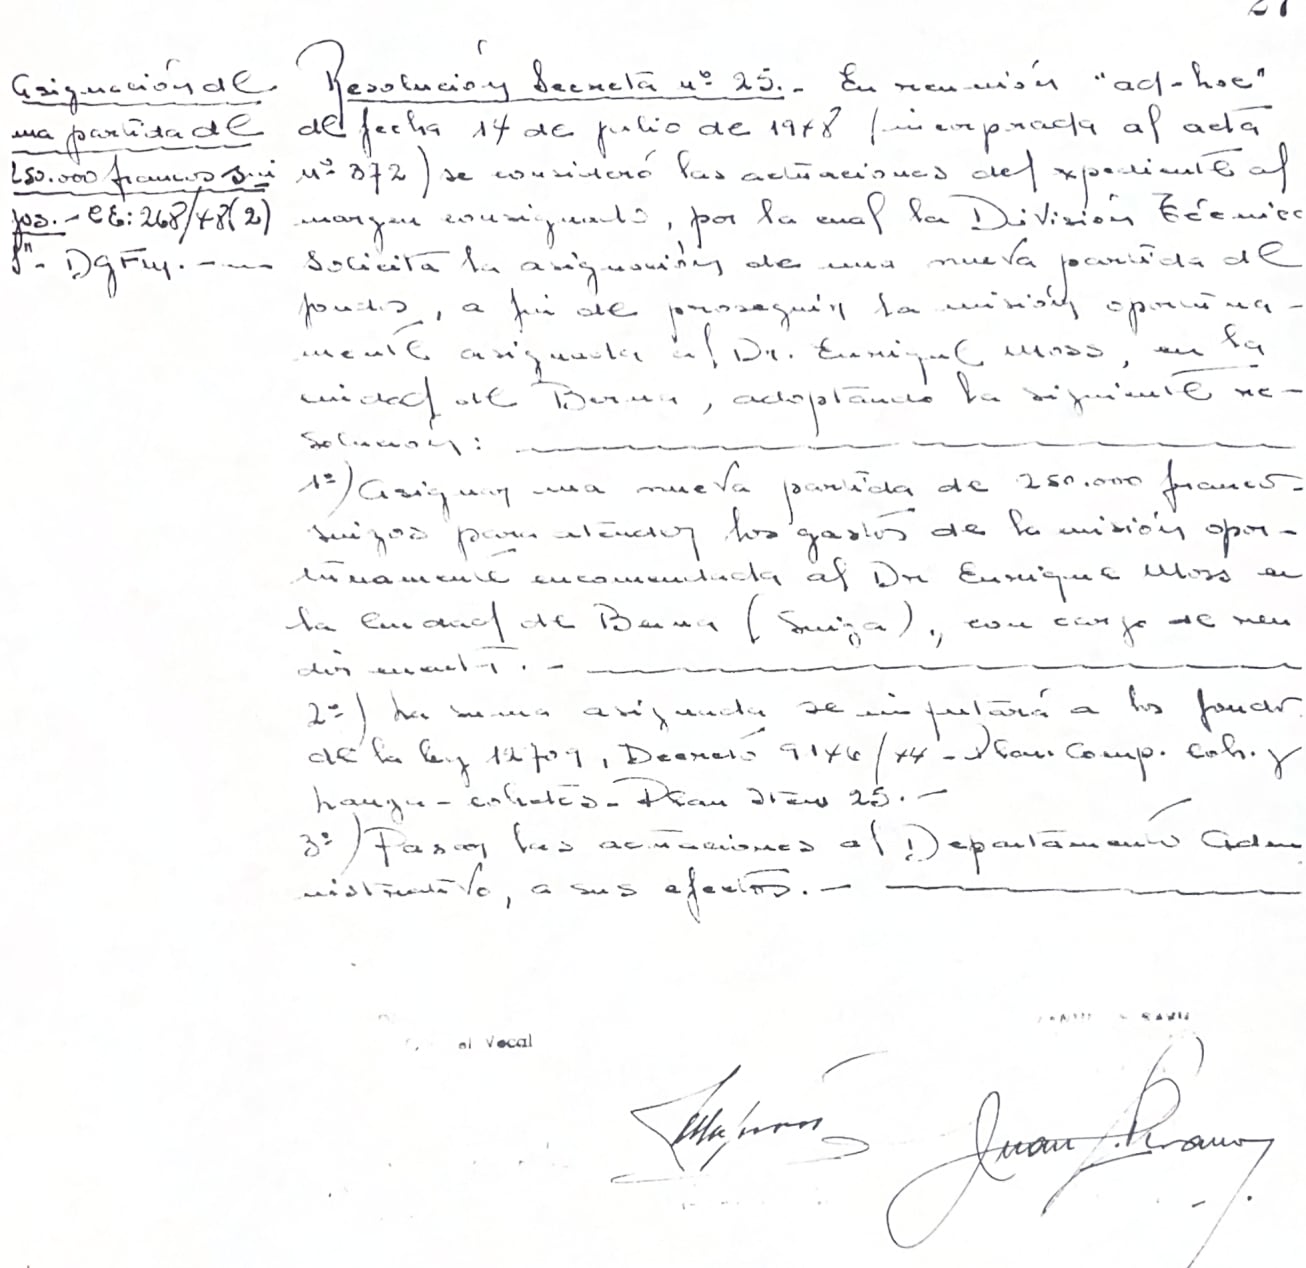 27
Asignación de
una partida de
250.000 francos sui
zos.- CE: 268/48(2)
Sn- DGFM. -.-
Resolución Secreta nº 25.- En reunión "ad-hoc"
de fecha 14 de julio de 1948 (incorporada al acta
nº 372) se consideró las actuaciones del expediente al
margen consignado, por la cual la División Técnica
Solicita la asignación de una nueva partida de
fondos, a fin de proseguir la misión oportuna-
mente asignada al Dr. Enrique Moss, en la
ciudad de Berna, adoptando la siguiente re-
solución:
1º) Asignar una nueva partida de 250.000 francos
suizos para atender los gastos de la misión opor-
tunamente encomendada al Dr Enrique Moss en
la Ciudad de Berna (Suiza), con cargo de ren
dir cuenta.-
2º) La suma asignada se imputará a los fondos
de la ley 12709, Decreto 9146/44 - Plan Comp. coh. y
- cohetes - Plan 25.-
3º) Pasar las actuaciones al Departamento Adm
nistrativo, a sus efectos.-
al Vocal
Juan